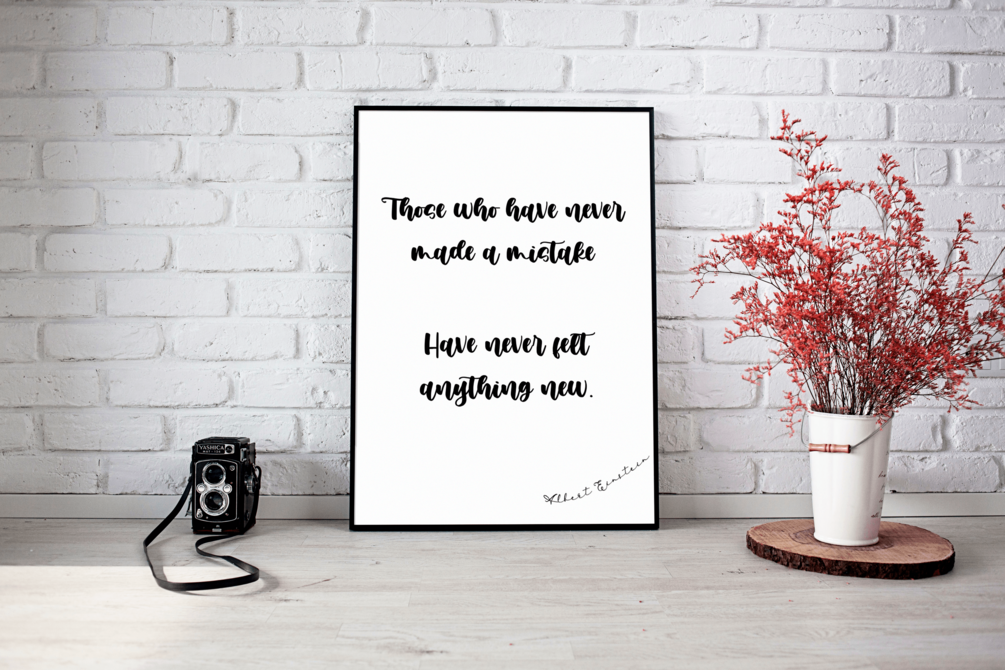 Those who have never
made a mistake
Have never felt
anything new.
Albert Einstein
YASHICA
MAT-124